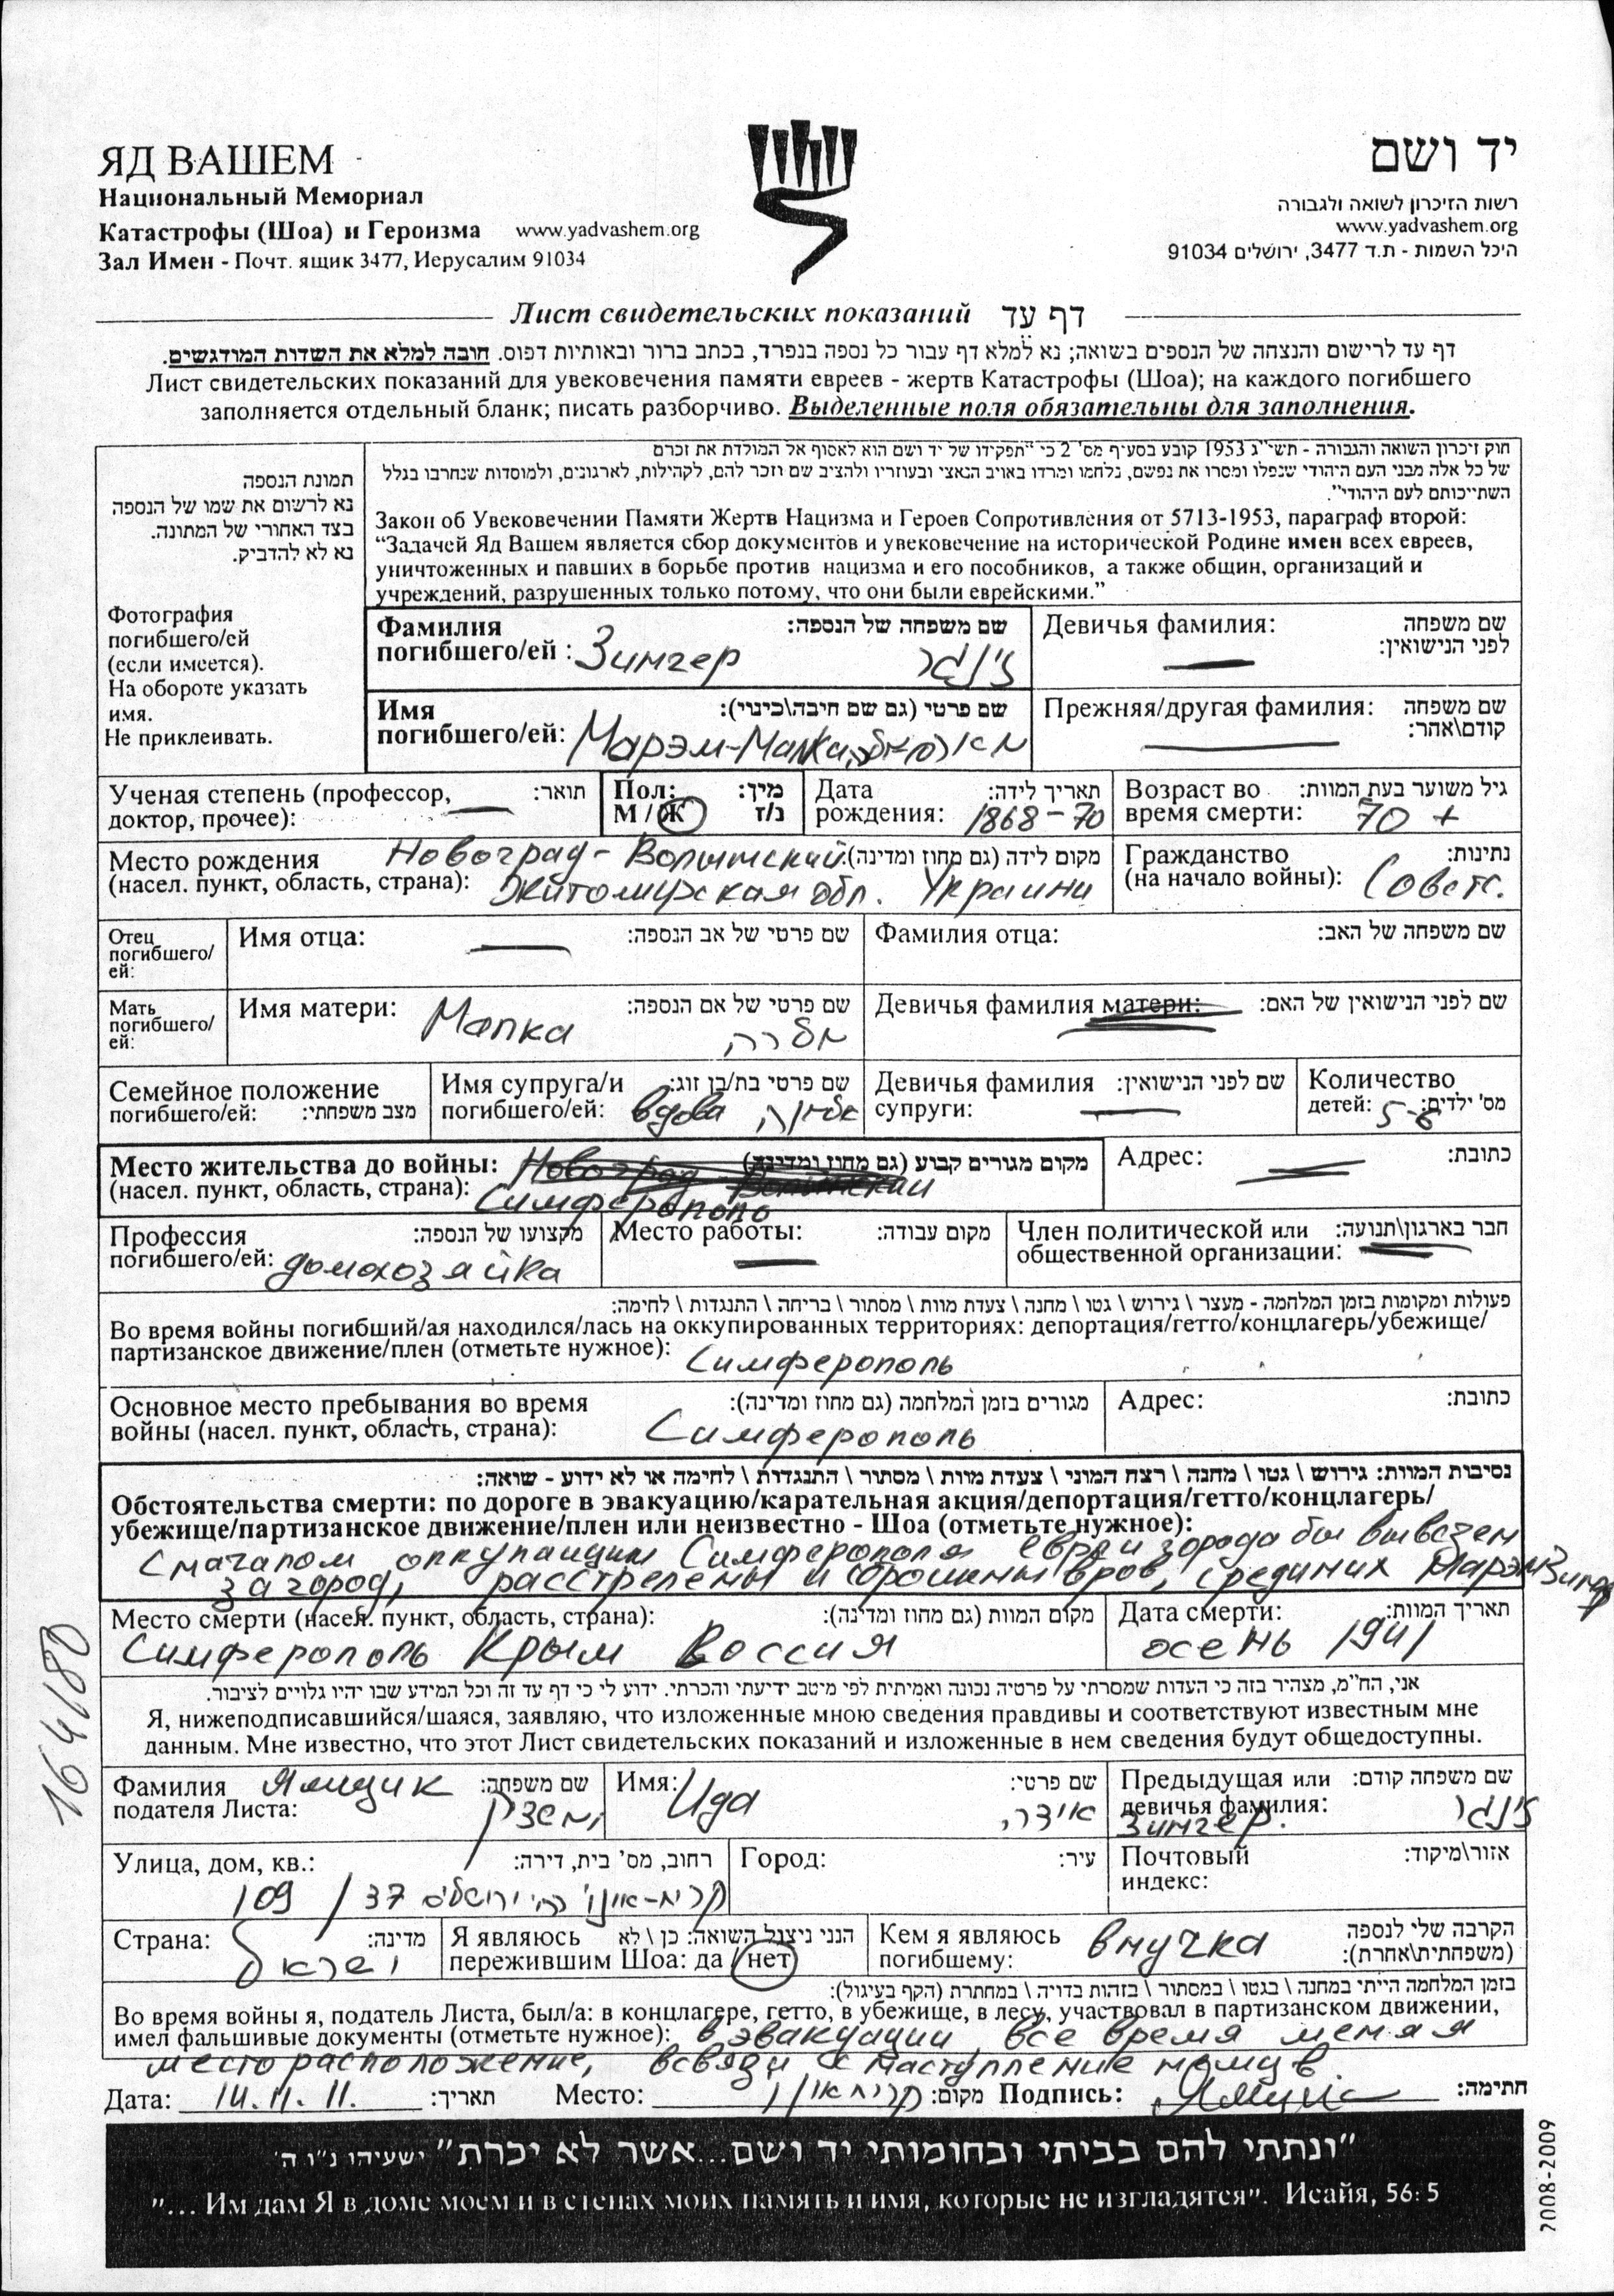 ЯД ВАШЕМ
Национальный Мемориал
Катастрофы (Шоа) и Героизма www.yadvashem.org
Зал Имен - Почт. ящик 3477, Иерусалим 91034
יד ושם
רשות הזיכרון לשואה ולגבורה
www.yadvashem.org
היכל השמות - ת.ד 3477, ירושלים 91034
Лист свидетельских показаний דף עד
דף עד לרישום והנצחה של הנספים בשואה; נא למלא דף עבור כל נספה בנפרד, בכתב ברור ובאותיות דפוס. חובה למלא את השדות המודגשים.
Лист свидетельских показаний для увековечения памяти евреев - жертв Катастрофы (Шоа); на каждого погибшего
заполняется отдельный бланк; писать разборчиво. Выделенные поля обязательны для заполнения.
תמונת הנספה
נא לרשום את שמו של הנספה
בצד האחורי של המתונה.
נא לא להדביק.
Фотография
погибшего/сй
(если имеется).
На обороте указать
имя.
Не приклеивать.
חוק זיכרון השואה והגבורה - תשי"ג 1953 קובע בסעיף מס' 2 כי "תפקידו של יד ושם הוא לאסוף אל המולדת את זכרם
של כל אלה מבני העם היהודי שנפלו ומסרו את נפשם, נלחמו ומרדו באויב הנאצי ובעוזריו ולהציב שם וזכר להם, לקהילות, לארגונים, ולמוסדות שנחרבו בגלל
השתייכותם לעם היהודי".
Закон об Увековечении Памяти Жертв Нацизма и Героев Сопротивления от 5713-1953, параграф второй:
“Задачей Яд Вашем является сбор документов и увековечение на исторической Родине имен всех евреев,
уничтоженных и павших в борьбе против нацизма и его пособников, а также общин, организаций и
учреждений, разрушенных только потому, что они были еврейскими.”
Фамилия שם משפחה של הנספה:
погибшего/ей : Зингер זינגר
Девичья фамилия: שם משפחה
לפני הנישואין: —
Имя שם פרטי (גם שם חיבה\כינוי):
погибшего/ей: Марэм-Малка
Прежняя/другая фамилия: שם משפחה
קודם\אחר: —
Ученая степень (профессор, — תואר:
доктор, прочее):
Пол: מין:
М / Ж ז/נ
Дата תאריך לידה:
рождения: 1868-70
Возраст во גיל משוער בעת המוות:
время смерти: 70 +
Место рождения Новоград-Волынский מקום לידה (גם מחוז ומדינה):
(насел. пункт, область, страна): Житомирская обл. Украины
Гражданство נתינות:
(на начало войны): Советс.
Отец
погибшего/
ей:
Имя отца: — שם פרטי של אב הנספה:
Фамилия отца: שם משפחה של האב:
Мать
погибшего/
ей:
Имя матери: Малка שם פרטי של אם הנספה:
Девичья фамилия матери: שם לפני הנישואין של האם:
Семейное положение
погибшего/ей: מצב משפחתי:
Имя супруга/и שם פרטי בת/בן זוג:
погибшего/ей: вдова אלמנה
Девичья фамилия שם לפני הנישואין:
супруги: —
Количество
детей: 5-6 מס' ילדים:
Место жительства до войны: Новоград Волынский מקום מגורים קבוע (גם מחוז ומדינה)
(насел. пункт, область, страна): Симферополь
Адрес: — כתובת:
Профессия מקצועו של הנספה:
погибшего/ей: домохозяйка
Место работы: — מקום עבודה:
Член политической или חבר בארגון\תנועה:
общественной организации: —
פעולות ומקומות בזמן המלחמה - מעצר \ גירוש \ גטו \ מחנה \ צעדת מוות \ מסתור \ בריחה \ התנגדות \ לחימה:
Во время войны погибший/ая находился/лась на оккупированных территориях: депортация/гетто/концлагерь/убежище/
партизанское движение/плен (отметьте нужное): Симферополь
Основное место пребывания во время מגורים בזמן המלחמה (גם מחוז ומדינה):
войны (насел. пункт, область, страна): Симферополь
Адрес: כתובת:
נסיבות המוות: גירוש \ גטו \ מחנה \ רצח המוני \ צעדת מוות \ מסתור \ התנגדות \ לחימה או לא ידוע - שואה:
Обстоятельства смерти: по дороге в эвакуацию/карательная акция/депортация/гетто/концлагерь/
убежище/партизанское движение/плен или неизвестно - Шоа (отметьте нужное):
С началом оккупации Симферополя евреи города бы вывезен
за город, расстрелены и сброшены в ров, среди них Марэм Зингер
Место смерти (насел. пункт, область, страна): מקום המוות (גם מחוז ומדינה):
Симферополь Крым Россия
Дата смерти: תאריך המוות:
осень 1941
אני, הח"מ, מצהיר בזה כי העדות שמסרתי על פרטיה נכונה ואמיתית לפי מיטב ידיעתי והכרתי. ידוע לי כי דף עד זה וכל המידע שבו יהיו גלויים לציבור.
Я, нижеподписавшийся/шаяся, заявляю, что изложенные мною сведения правдивы и соответствуют известным мне
данным. Мне известно, что этот Лист свидетельских показаний и изложенные в нем сведения будут общедоступны.
Фамилия Ямщик שם משפחה:
подателя Листа: ימשציק
Имя: Ида שם פרטי:
אידה
Предыдущая или שם משפחה קודם:
девичья фамилия: זינגר
Зингер.
Улица, дом, кв.: רחוב, מס' בית, דירה:
109 / 37
Город: עיר:
Почтовый אזור\מיקוד:
индекс:
Страна: מדינה:
ישראל
Я являюсь הנני ניצול השואה: כן \ לא
пережившим Шоа: да / нет
Кем я являюсь внучка הקרבה שלי לנספה
погибшему: (משפחתית\אחרת):
בזמן המלחמה הייתי במחנה \ בגטו \ במסתור \ בזהות בדויה \ במחתרת (הקף בעיגול):
Во время войны я, податель Листа, был/а: в концлагере, гетто, в убежище, в лесу, участвовал в партизанском движении,
имел фальшивые документы (отметьте нужное): в эвакуации, все время меняя
место расположение, всвязи с наступление немцв
Дата: 14.11.11. תאריך: Место: מקום: Подпись: חתימה:
"ונתתי להם בביתי ובחומותי יד ושם...אשר לא יכרת" ישעיהו נ"ו ה'
"... Им дам Я в доме моем и в стенах моих память и имя, которые не изгладятся". Исайя, 56: 5
164180
2008-2009